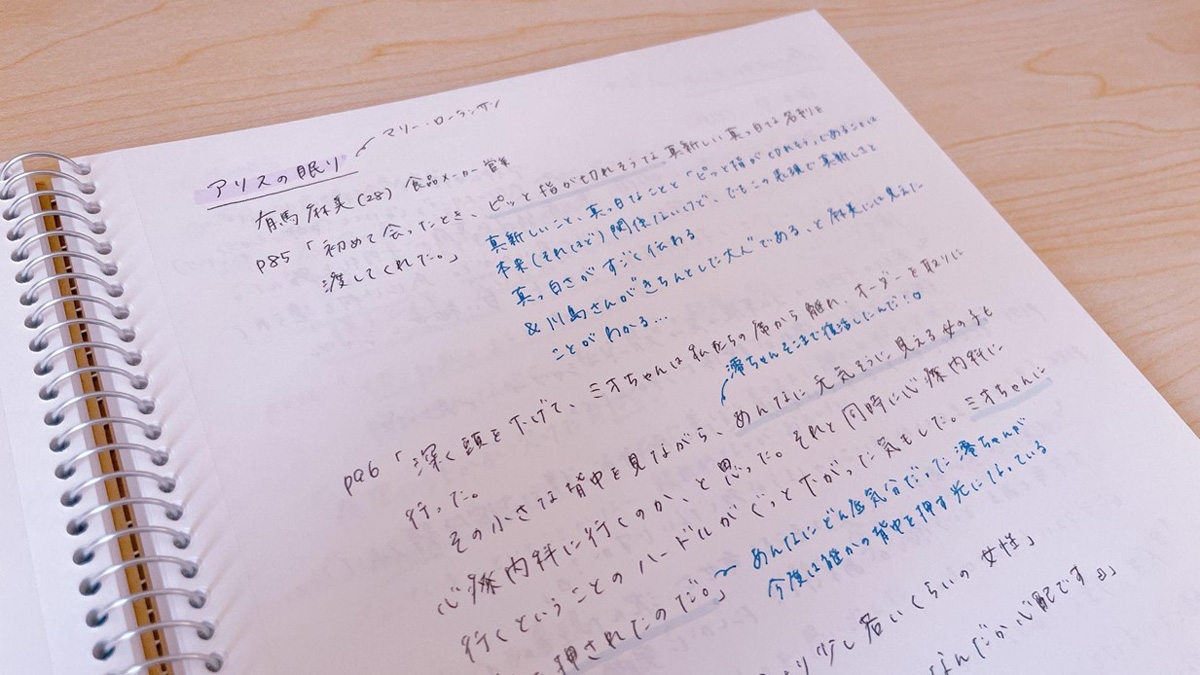 マリー・ローランサン
アリスの眠り
有馬麻美(28) 食品メーカー営業
p85「初めて会ったとき、ピッと指が切れそうな真新しい真っ白な名刺を
渡してくれた。」
真新しいこと、真っ白なことと「ピッと指が切れそう」であることは
本来(それほど)関係ないけど、でもこの表現で真新しさと
真っ白さがすごく伝わる
&川島さんが"きちんとした大人"である、と麻美には見えた
ことがわかる…
p96「深く頭を下げて、ミオちゃんは私たちの席から離れ、オーダーを取りに
行った。
澪ちゃんそこまで復活したんだ!
その小さな背中を見ながら、あんなに元気そうに見える女の子も
心療内科に行くのか、と思った。それと同時に心療内科に
行くということのハードルがぐっと下がった気もした。ミオちゃんに
押されたのだ。」
あんなにどん底気分だった澪ちゃんが
今度は誰かの背中を押す光になっている
り少し若いくらいの女性」
なんだか心配です」